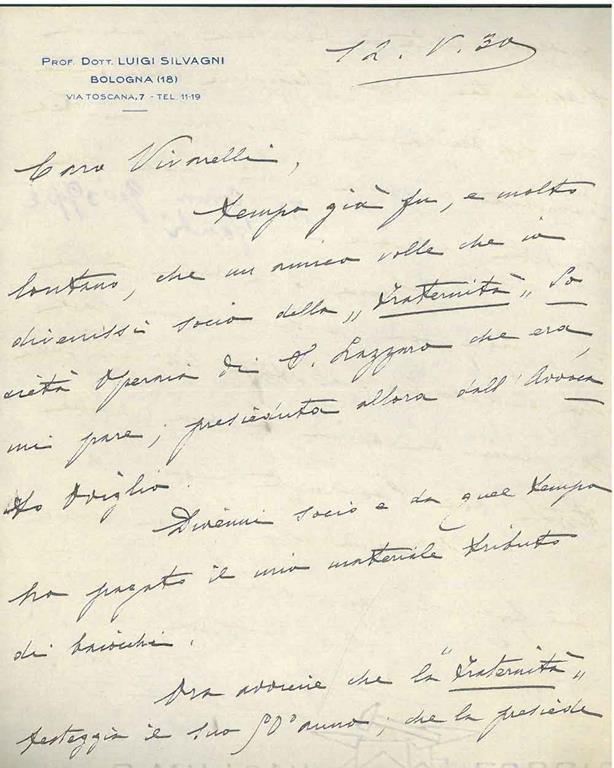 PROF. DOTT. LUIGI SILVAGNI
BOLOGNA (18)
VIA TOSCANA, 7 - TEL. 11-19
12. V. 30
Caro Vivarelli,
Tempo già fu, e molto
lontano, che un amico volle che io
divenissi socio della „Fraternità„ So
cietà Operaia di S. Lazzaro che era,
mi pare, presieduta allora dall'Avvoca
to Oviglio.
Divenni socio e da quel tempo
ho pagato il mio materiale tributo
di baiocchi.
Ora avviene che la "Fraternità„
festeggia il suo 50° anno, che la presiede